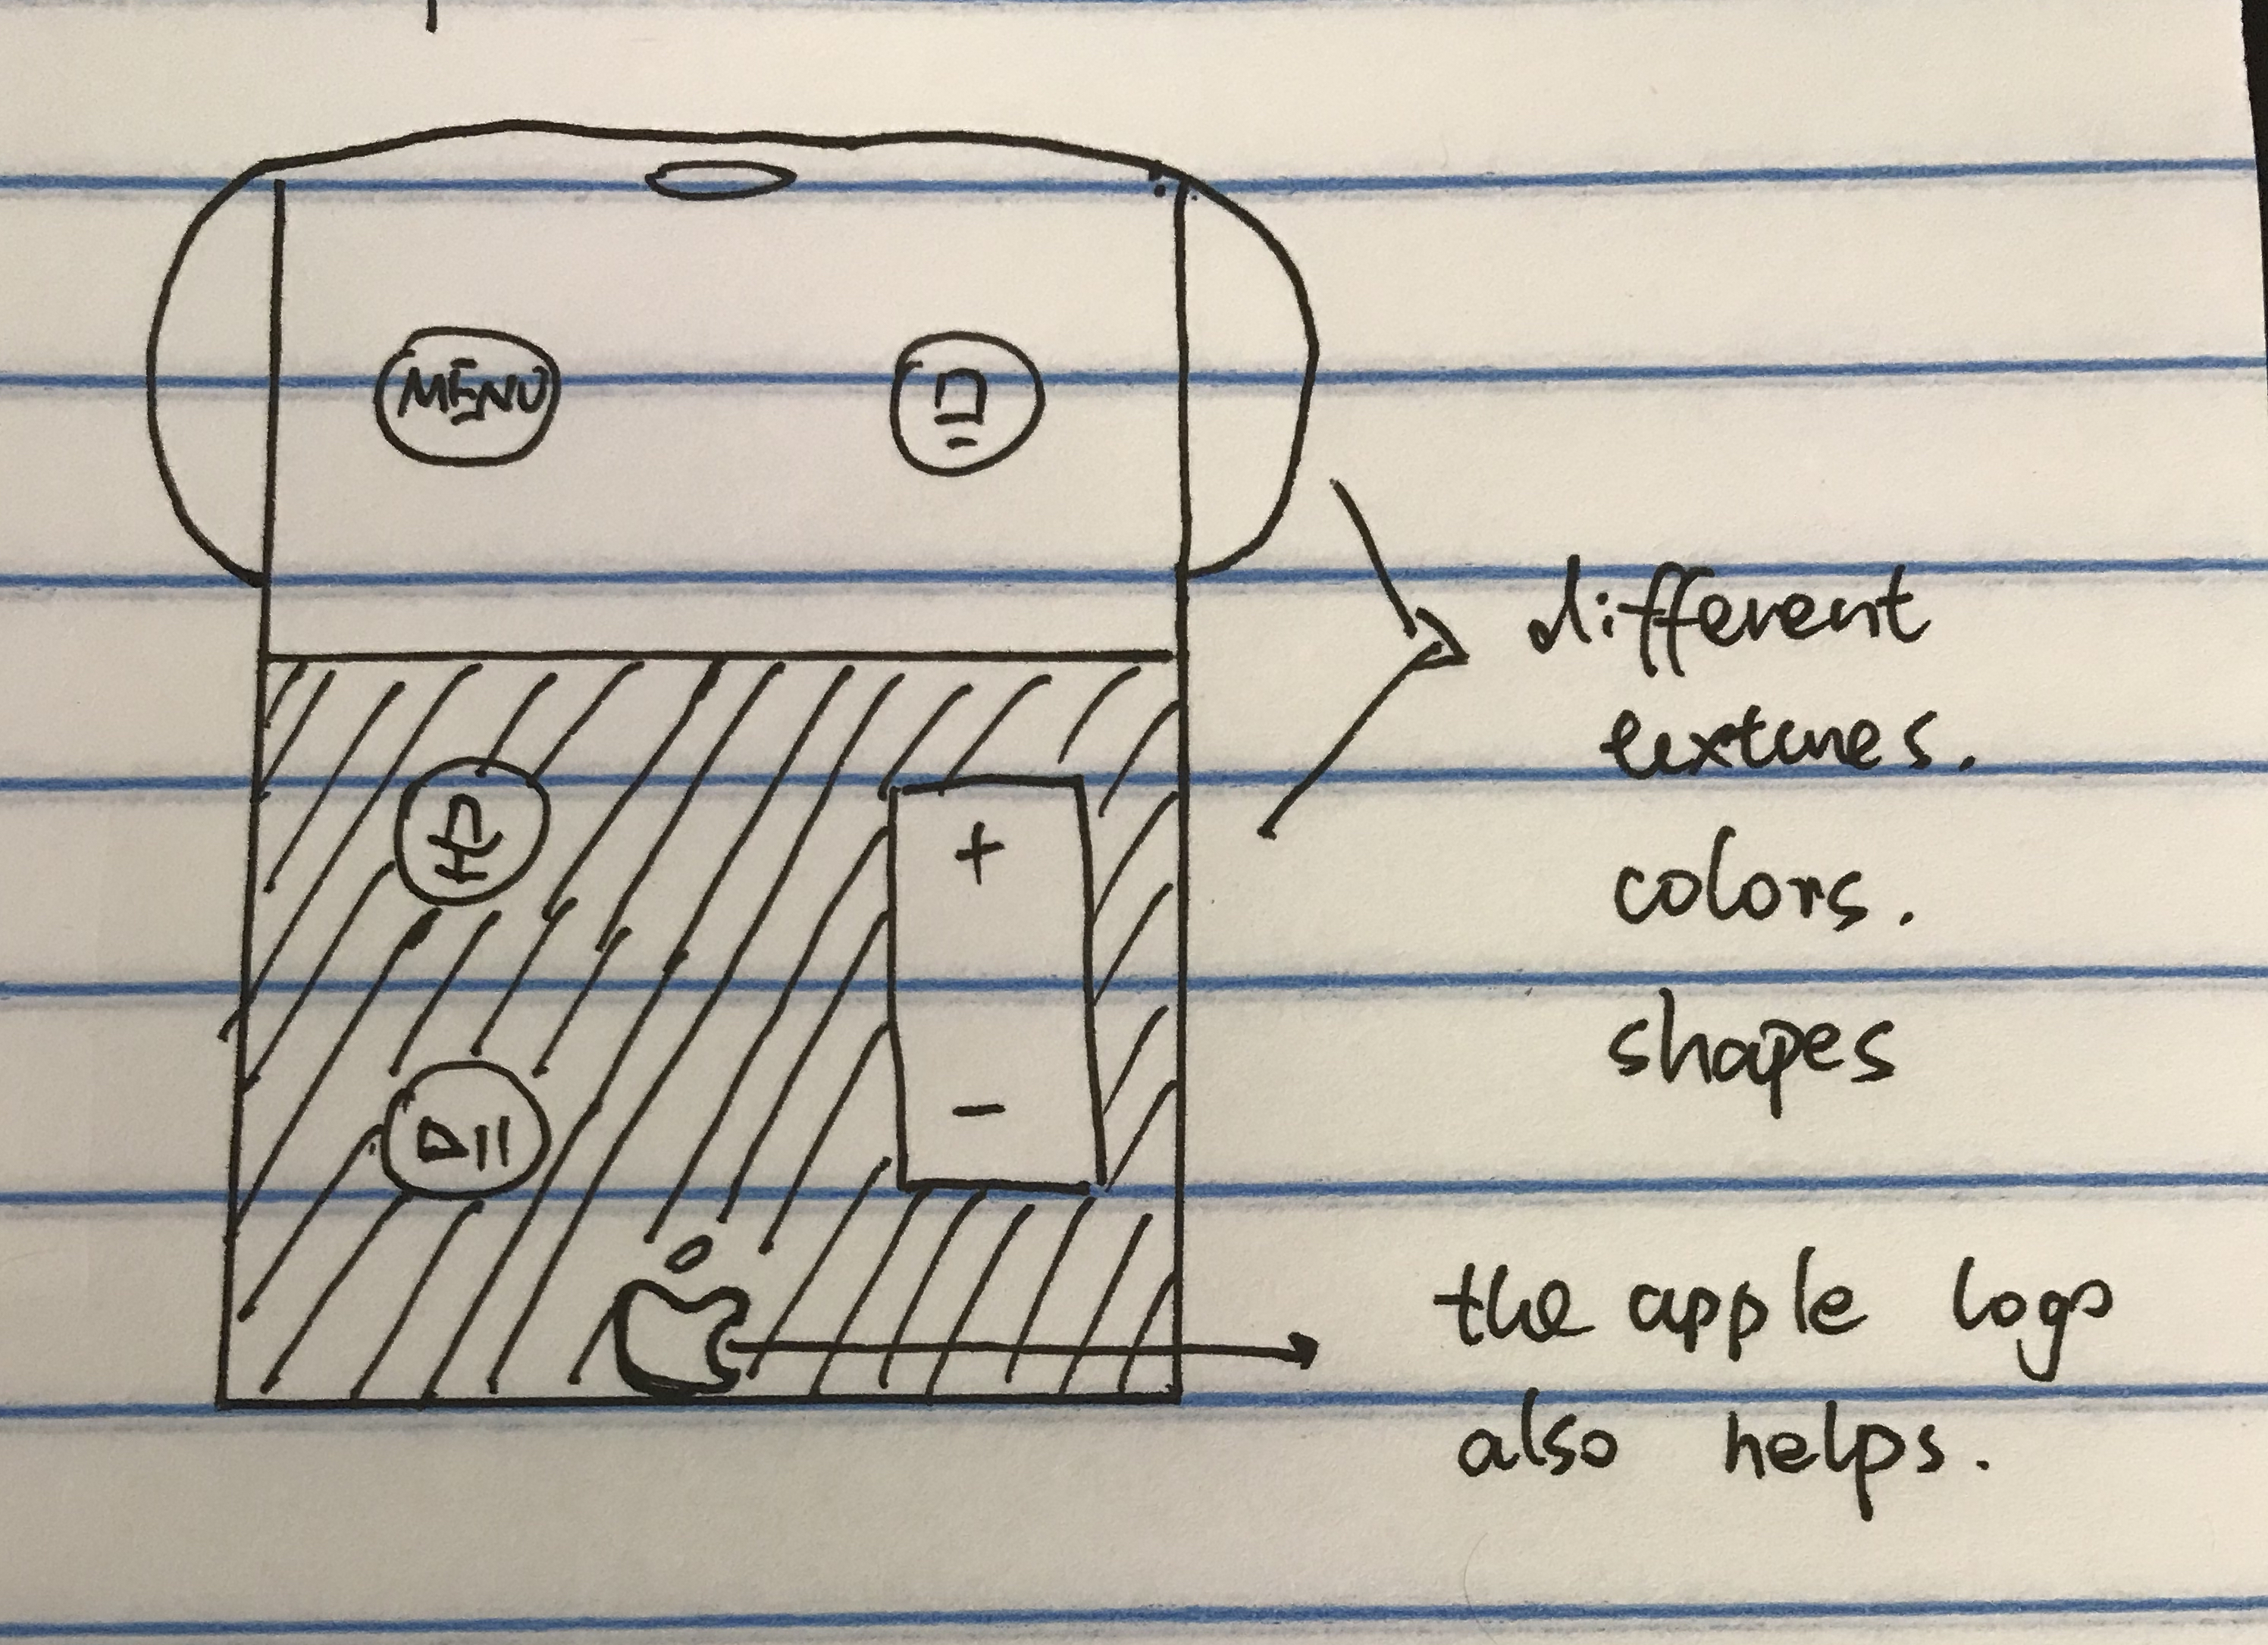 MENU
+
-
different
textures.
colors.
shapes
the apple logo
also helps.